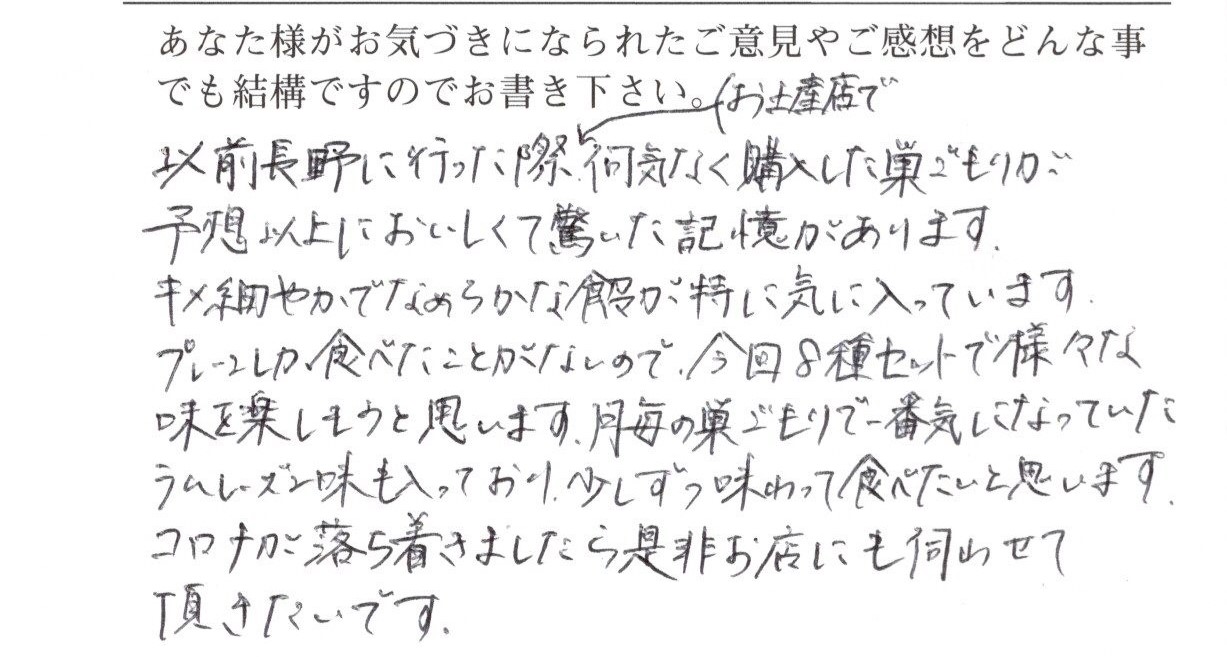 あなた様がお気づきになられたご意見やご感想をどんな事
でも結構ですのでお書き下さい。
お土産店で
以前長野に行った際、何気なく購入した巣ごもりが
予想以上においしくて驚いた記憶があります。
キメ細やかでなめらかな餡が特に気に入っています。
プレーンしか食べたことがないので、今回8種セットで様々な
味を楽しもうと思います。月毎の巣ごもりで一番気になっていた
ラムレーズン味も入っており、少しずつ味わって食べたいと思います。
コロナが落ち着きましたら是非お店にも伺わせて
頂きたいです。